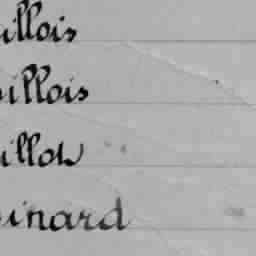 illois
illois
illot
inard